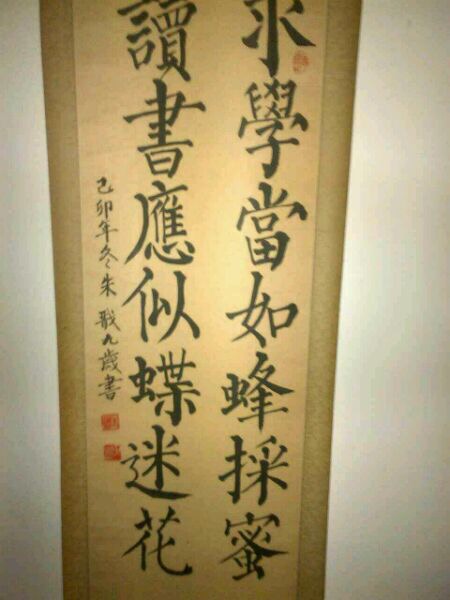 求學當如蜂採蜜
讀書應似蝶迷花
己卯年冬朱戬九歲書